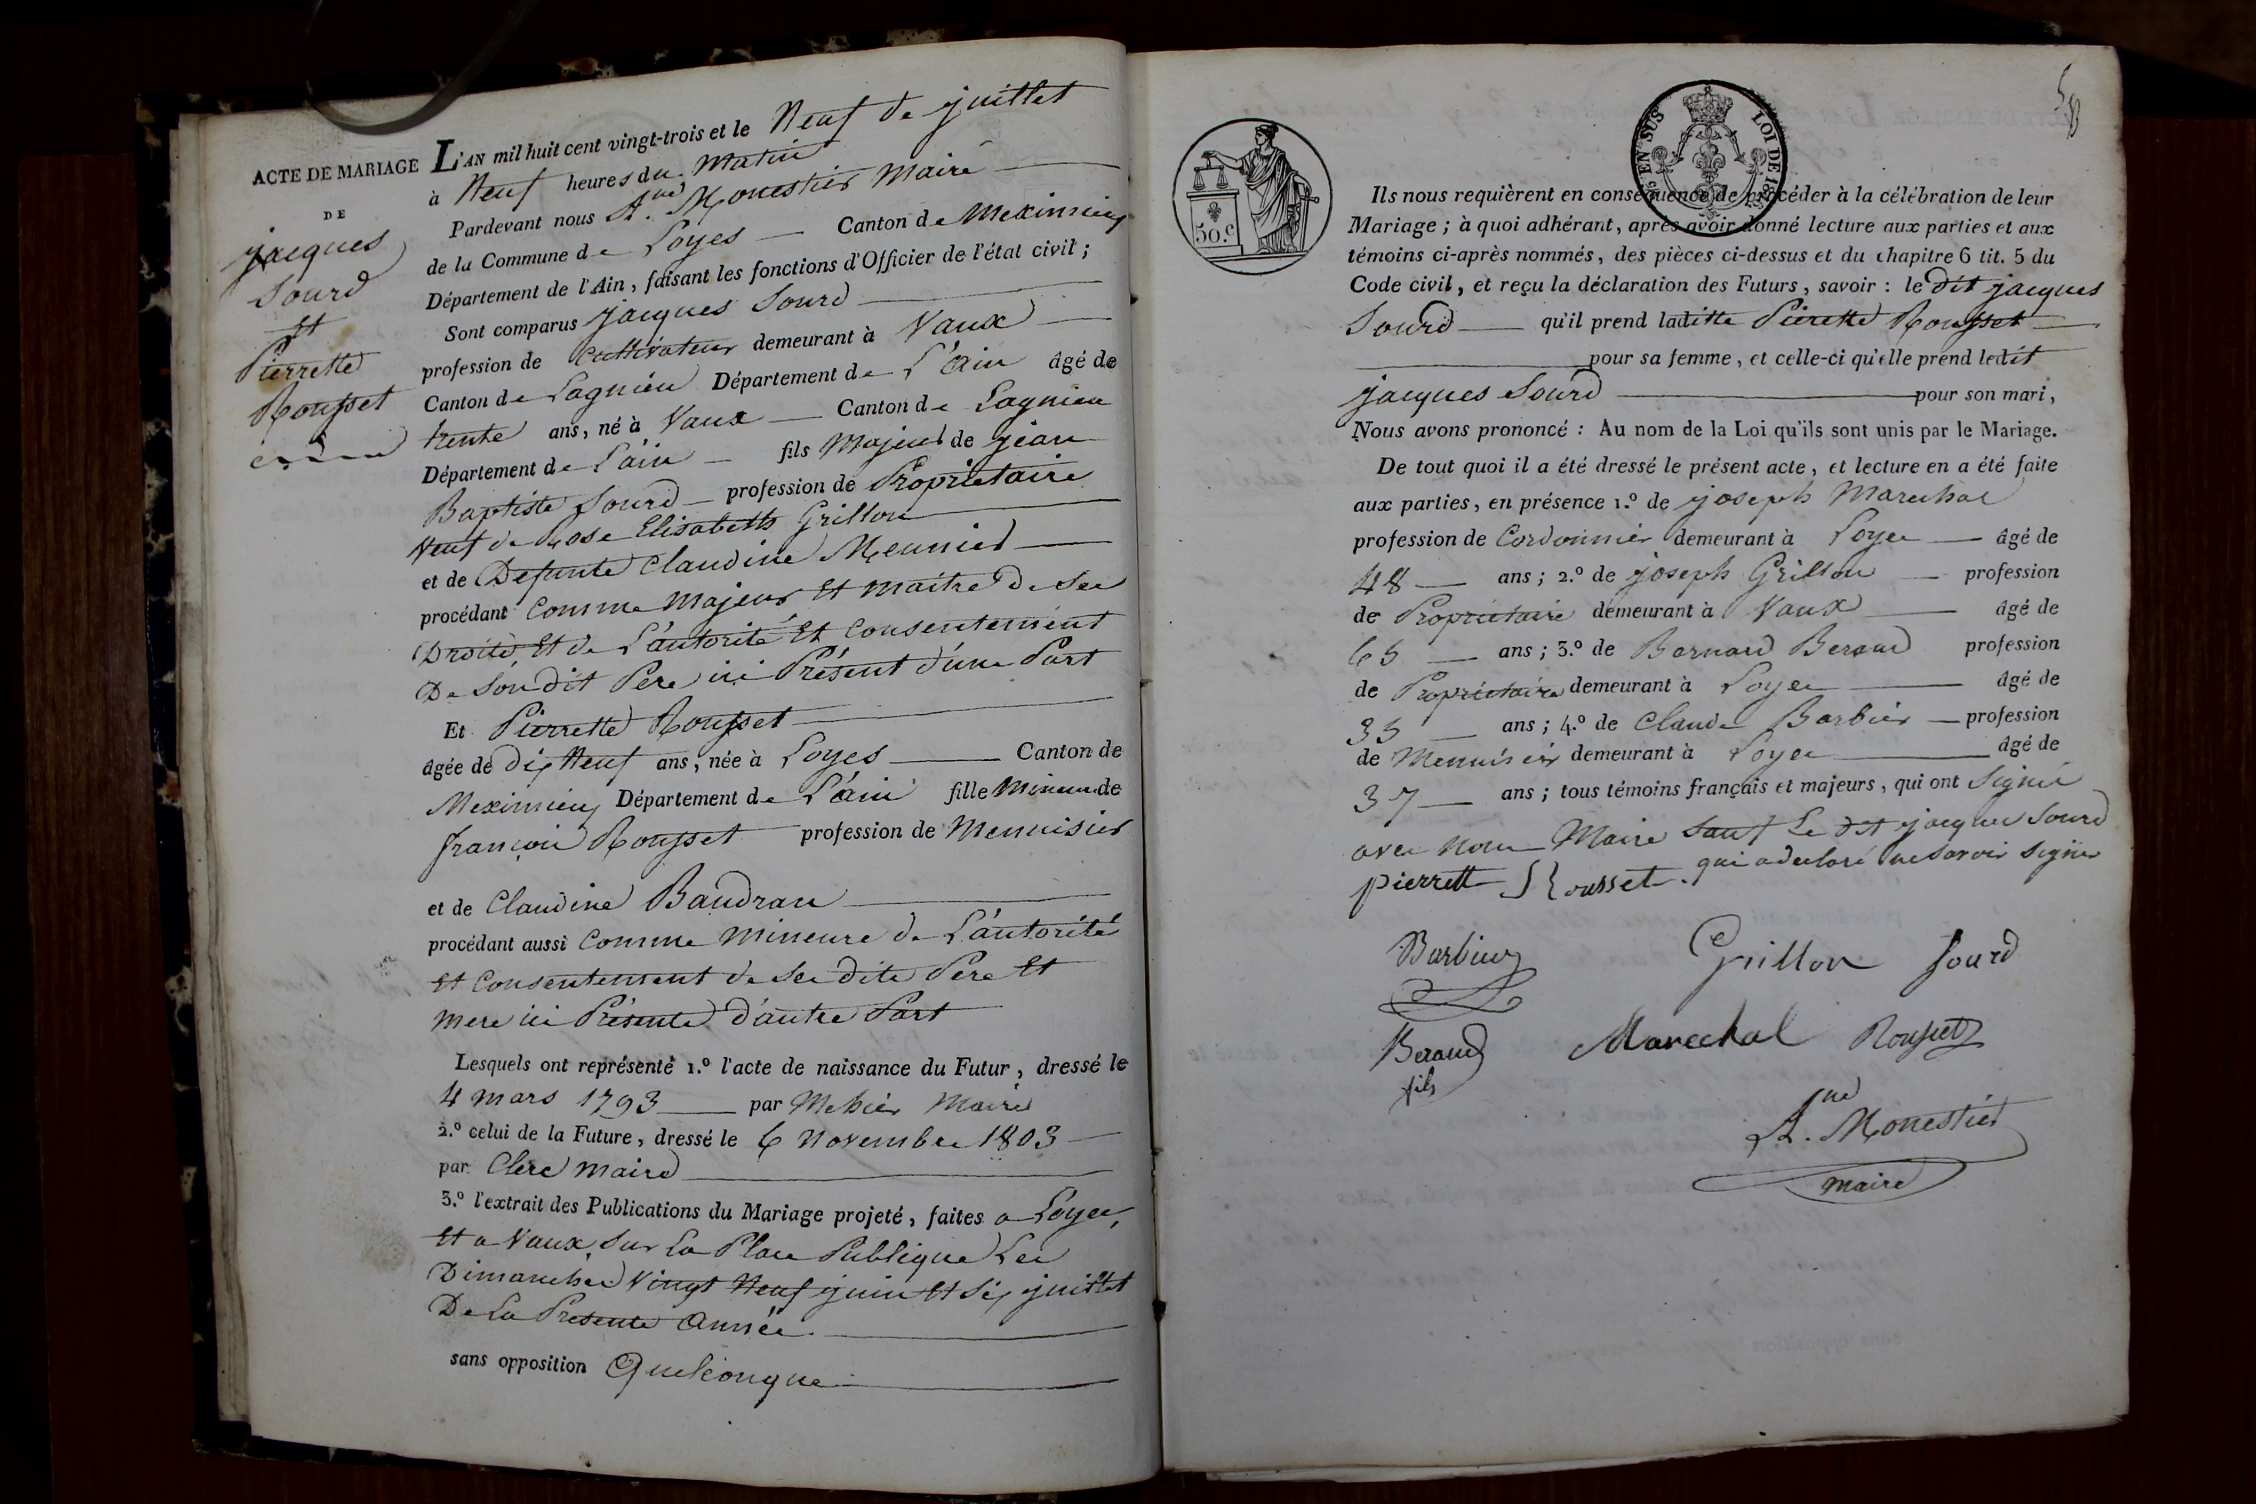 ACTE DE MARIAGE
DE
jacques
Sourd
Et
Pierrette
Rousset
L'AN mil huit cent vingt-trois et le Neuf de juillet
à Neuf heures du matin
Pardevant nous A.ne Monestier Maire
de la Commune de Loyes Canton de Meximieux
Département de l'Ain, faisant les fonctions d'Officier de l'état civil;
Sont comparus jacques Sourd
profession de Cultivateur demeurant à Vaux
Canton de Lagnieu Département de L'ain âgé de
trente ans, né à Vaux Canton de Lagnieu
Département de L'ain fils Majeur de jean
Baptiste Sourd profession de Propriétaire
Veuf de Rose Elisabeth Grillon
et de Defunte Claudine Meunier
procédant Comme Majeur Et maitre de ses
Droits Et de L'autorité Et Consentement
De Son dit Pere ici Présent d'une Part
Et Pierrette Rousset
âgée de dix Neuf ans, née à Loyes Canton de
Meximieux Département de L'ain fille Mineure de
françois Rousset profession de Menuisier
et de Claudine Baudran
procédant aussi Comme Mineure de L'autorité
Et Consentement de Ses dits Pere Et
Mere ici Présents d'autre Part
Lesquels ont représenté 1.º l'acte de naissance du Futur, dressé le
4 mars 1793 par Maire
2.º celui de la Future, dressé le 6 Novembre 1803
par Clerc Maire
3.º l'extrait des Publications du Mariage projeté, faites a Loyes,
Et a Vaux, Sur La Place Publique Les
Dimanches Vingt Neuf juin Et Six juillet
De La Présente année.
sans opposition Quelconque
50.c
EN SUS LOI DE
58
Ils nous requièrent en conséquence de procéder à la célébration de leur
Mariage; à quoi adhérant, après avoir donné lecture aux parties et aux
témoins ci-après nommés, des pièces ci-dessus et du chapitre 6 tit. 5 du
Code civil, et reçu la déclaration des Futurs, savoir: le dit jacques
Sourd qu'il prend ladite Pierette Rousset
pour sa femme, et celle-ci qu'elle prend ledit
jacques Sourd pour son mari,
Nous avons prononcé: Au nom de la Loi qu'ils sont unis par le Mariage.
De tout quoi il a été dressé le présent acte, et lecture en a été faite
aux parties, en présence 1.º de joseph Marechal
profession de Cordonnier demeurant à Loyes âgé de
48 ans; 2.º de joseph Grillon profession
de Propriétaire demeurant à Vaux âgé de
65 ans; 3.º de Bernard Beraud profession
de Propriétaire demeurant à Loyes âgé de
35 ans; 4.º de Claude Barbier profession
de Menuisier demeurant à Loyes âgé de
37 ans; tous témoins français et majeurs, qui ont Signé
avec nous Maire Sauf Le dit jacques Sourd
qui a declaré ne Savoir Signer
pierrette Rousset
Barbier Grillon Sourd
Beraud Marechal Rousset
fils
A.ne Monestier
maire